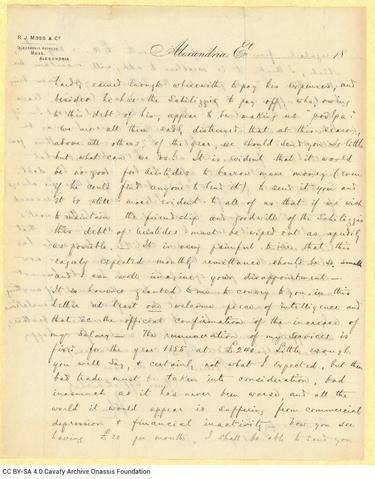 R. J. MOSS & Co
TELEGRAPHIC ADDRESS
MOSS,
ALEXANDRIA
Alexandria Et. 18
hardly earned enough wherewith to pay his expenses, and
besides he has the to pay off, who, owing
to this debt of his, appear to be making us
We are all then sadly distressed that at this season,
above all others, of the year, we should send you so little
but what can we do. It is evident that it would
be no good for Aristides to borrow more money (even
if he could find anyone to lend it) to send it you and
it is still more evident to all of us that if we wish
to maintain the friendship and goodwill of the
this debt of Aristides must be wiped out as speedily
as possible. It is very painful to me that this
eagerly expected monthly remittance should be so small
and I can well imagine your disappointment —
It is however granted to me to convey to you in this
letter at least one welcome piece of intelligence and
that is the official confirmation of the increase of
my salary — The remuneration of my services is
fixed, for the year 1885 at £240. Little enough
you will say, & certainly not what I expected, but then
bad trade must be taken into consideration, bad
inasmuch as it has never been worse, and all the
world it would appear is suffering from commercial
depression & financial inactivity. Now you see
having £20 per month, I shall be able to send you
CC BY-SA 4.0 Cavafy Archive Onassis Foundation